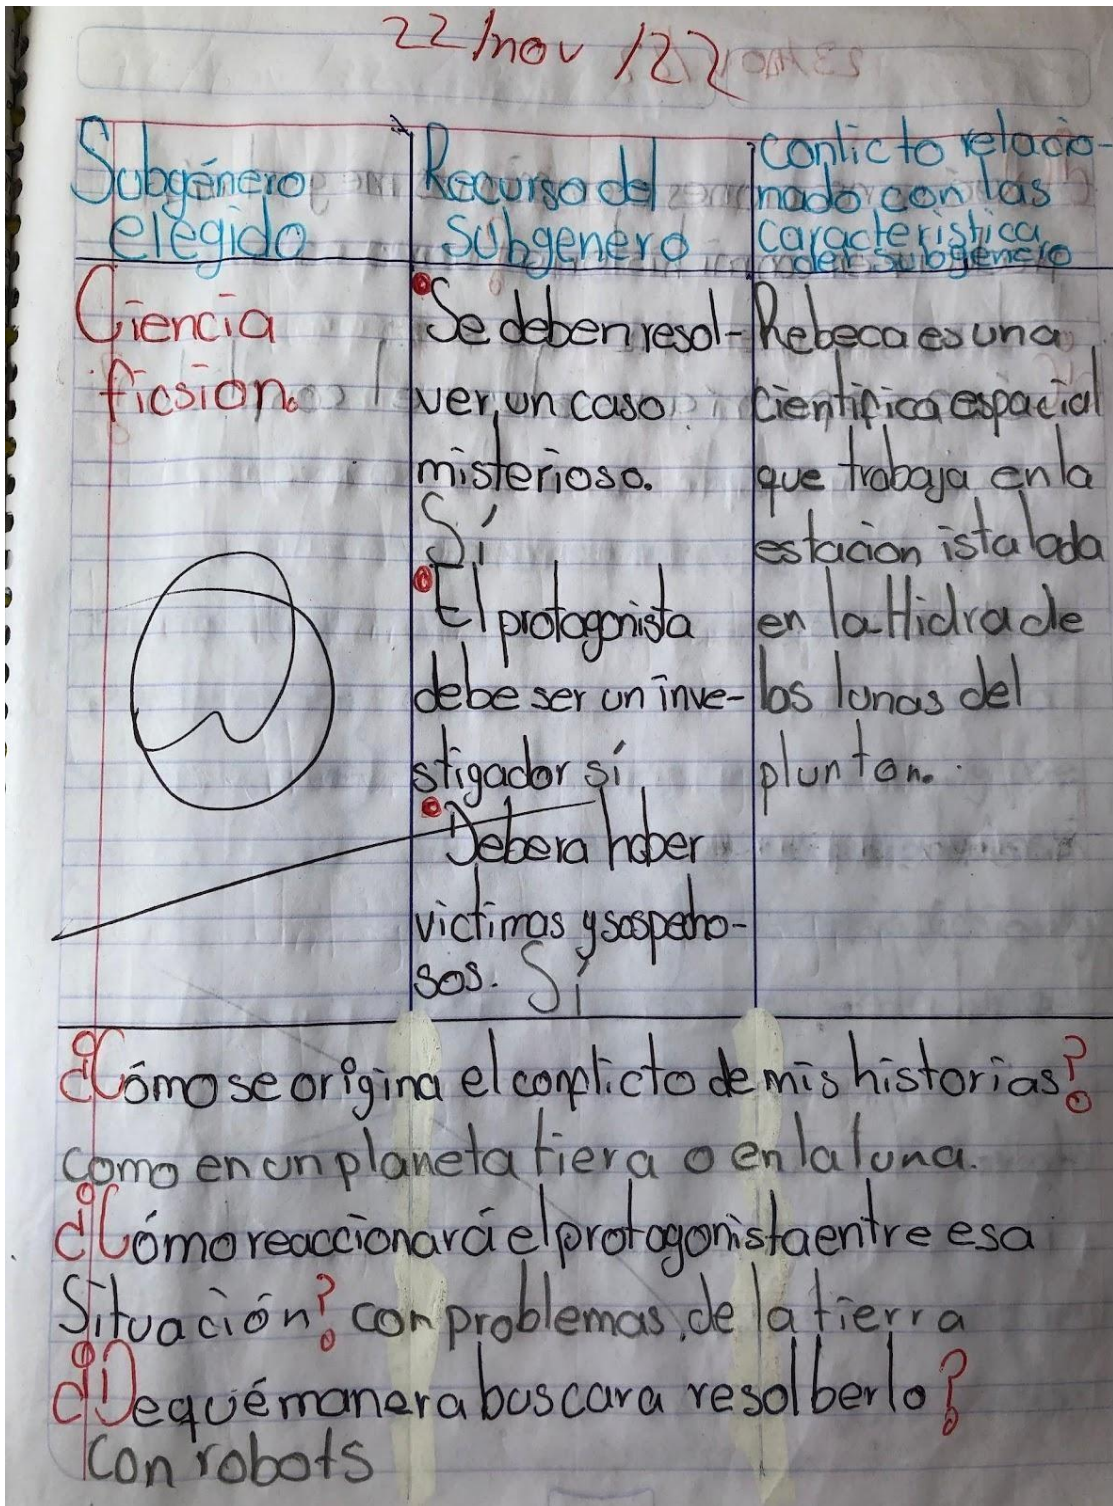 22/nov/22
Subgénero
elegido
Recurso del
subgenero
conlicto relacio-
nado con las
caracteristica
del subgénero
Ciencia
ficsion.
Se deben resol-
ver, un caso
misterioso.
Sí
El protagonista
debe ser un inve-
stigador sí
Debera haber
victimas y sospecho-
sos. Sí
Rebeca es una
cientifica espacial
que trabaja en la
estacion istalada
en la Hidra de
los lunas del
plunton.
¿Cómo se origina el conflicto de mis historias?
como en un planeta tiera o en la luna.
¿Cómo reaccionará el protagonista entre esa
Situación? con problemas de la tierra
¿De qué manera buscara resolberlo?
Con robots